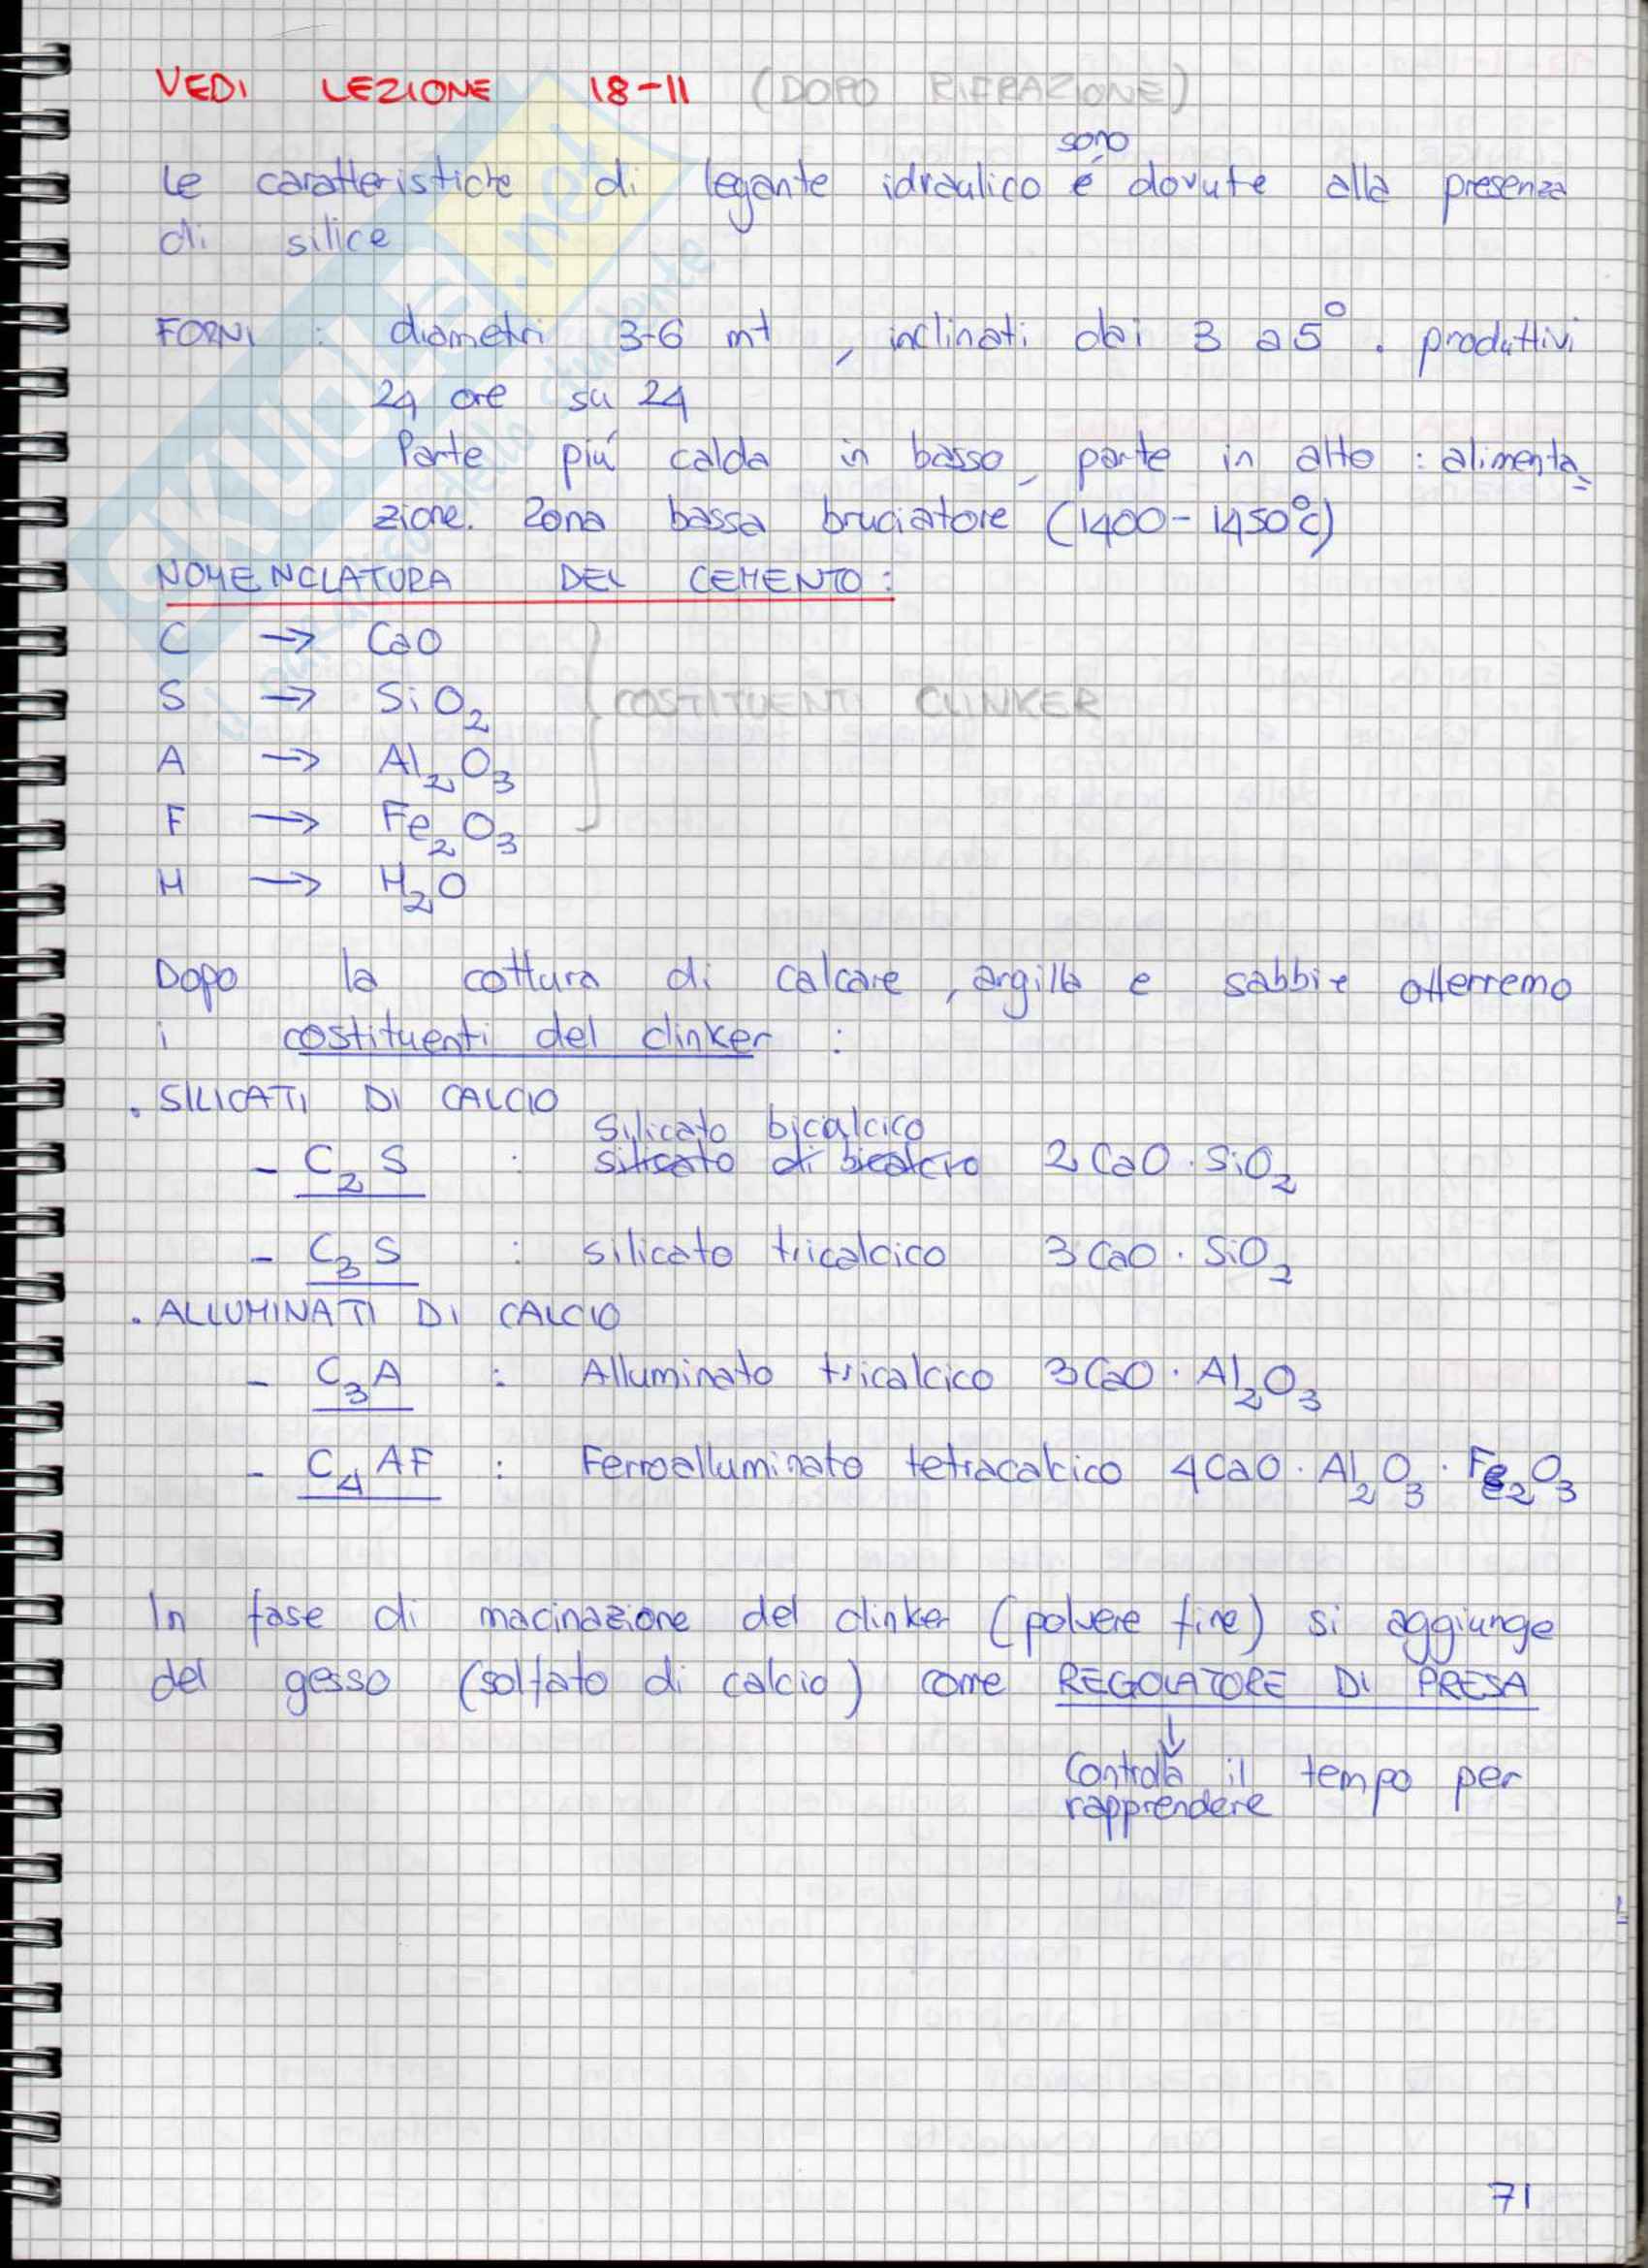 VEDI LEZIONE 18-11 (DOPO RIFRAZIONE)
sono
Le caratteristiche di legante idraulico é dovute alla presenza
di silice
FORNI : diametri 3-6 mt , inclinati dai 3 a 5° . produttivi
24 ore su 24
Parte piú calda in basso, parte in alto : alimenta=
zione. Zona bassa bruciatore (1400-1450°C)
NOMENCLATURA DEL CEMENTO :
C → CaO
S → SiO2
COSTITUENTI CLINKER
A → Al2O3
F → Fe2O3
H → H2O
Dopo la cottura di calcare , argilla e sabbie otterremo
i costituenti del clinker :
. SILICATI DI CALCIO
Silicato bicalcico
- C2S : silicato di bicalcio 2CaO · SiO2
- C3S : silicato tricalcico 3CaO · SiO2
. ALLUMINATI DI CALCIO
- C3A : Alluminato tricalcico 3CaO · Al2O3
- C4AF : Ferroalluminato tetracalcico 4CaO · Al2O3 · Fe2O3
In fase di macinazione del clinker (polvere fine) si aggiunge
del gesso (solfato di calcio) come REGOLATORE DI PRESA
↓
Controlla il tempo per
rapprendere
71
SKUOLA.net
il paradiso dello studente